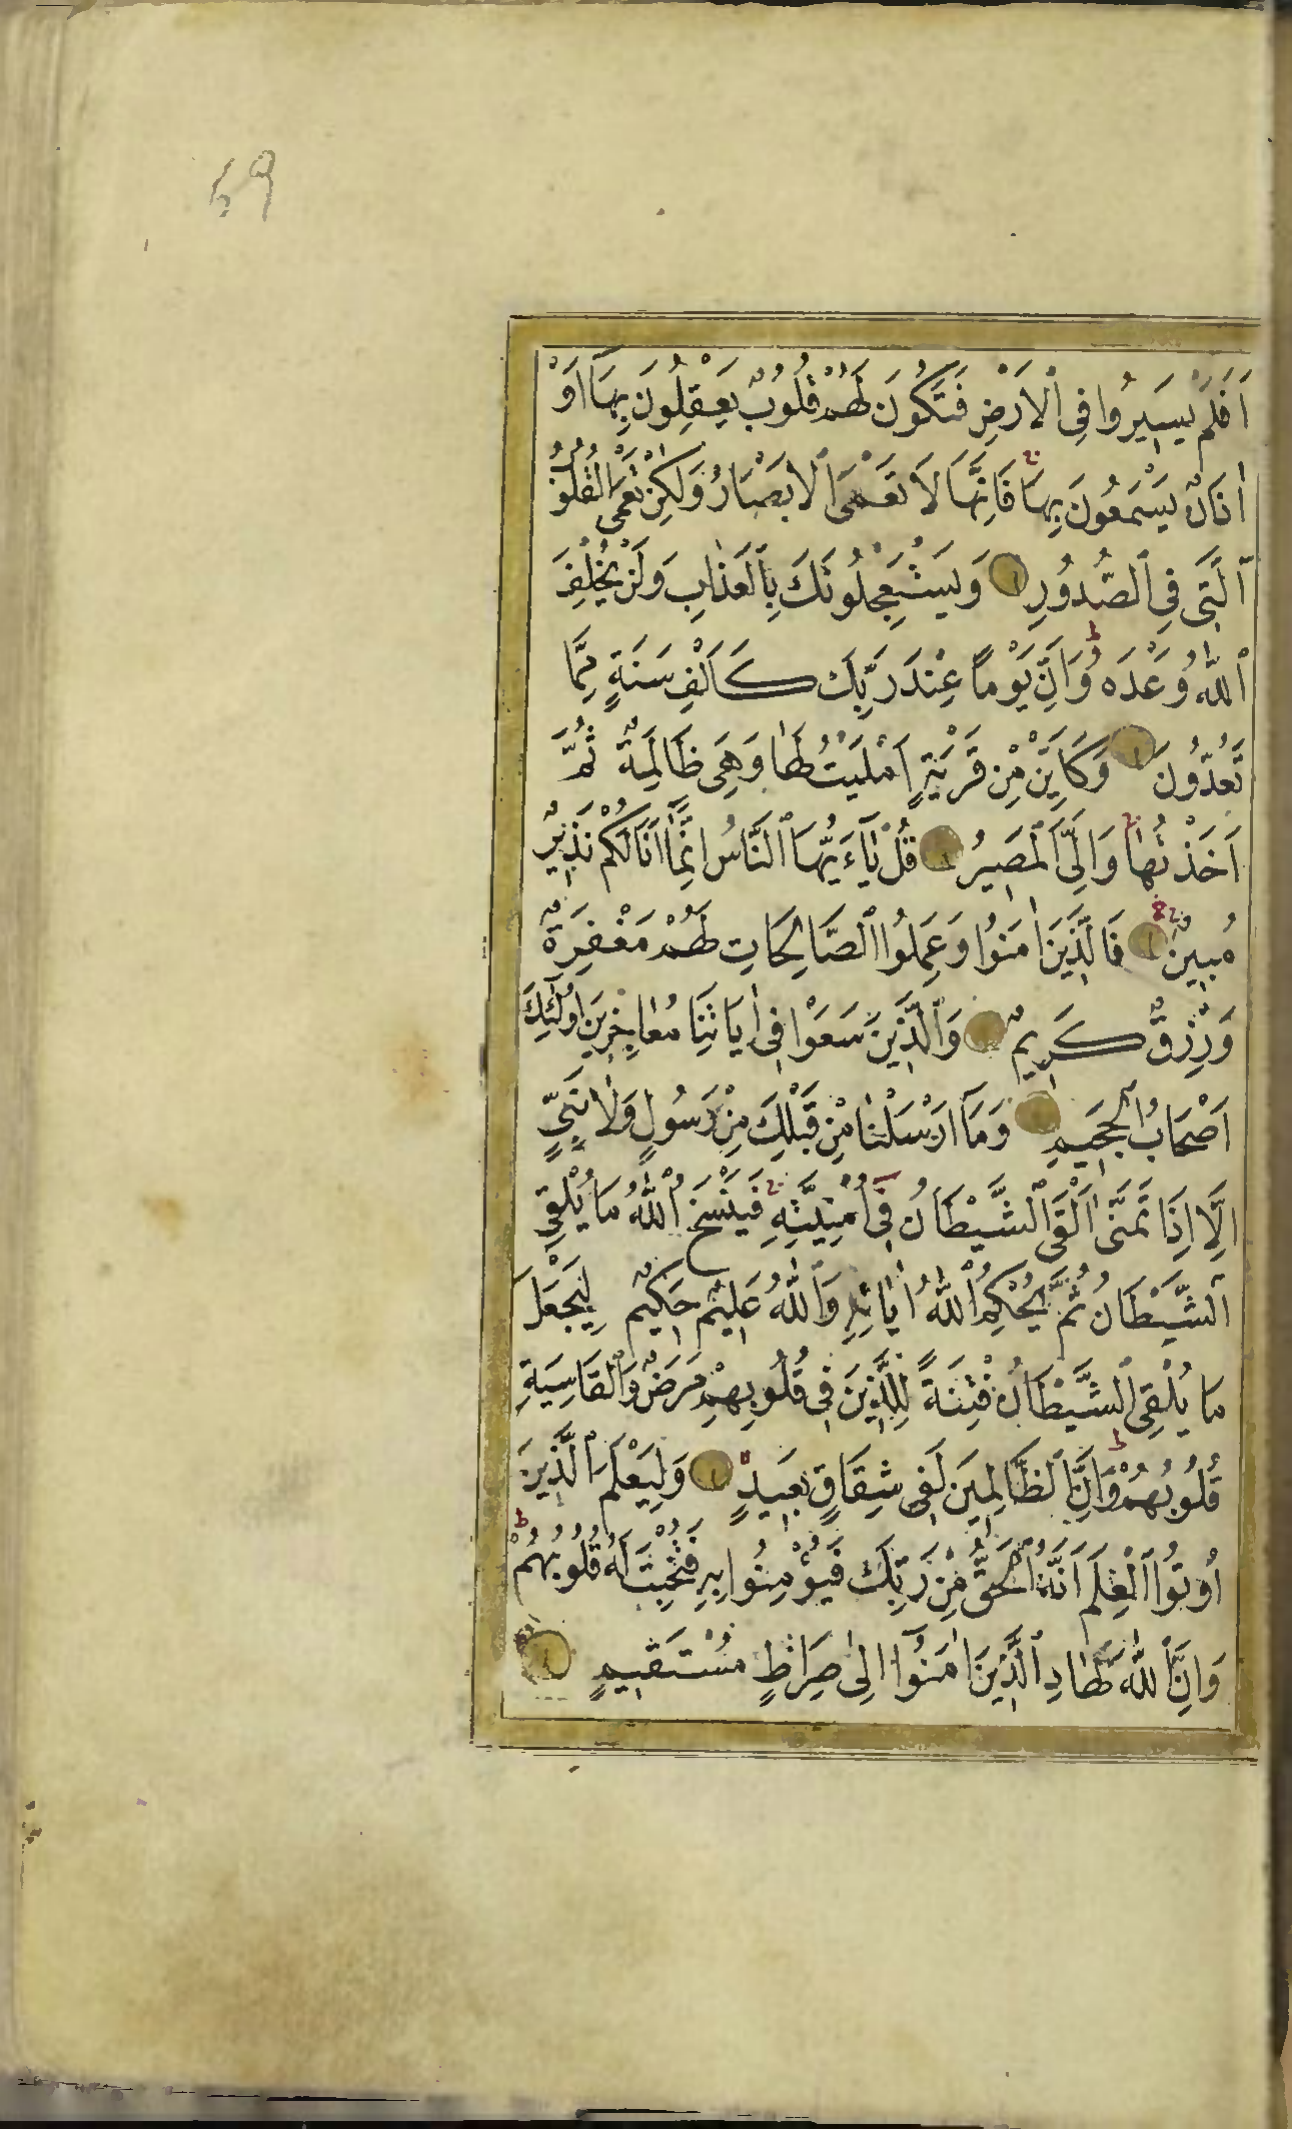 59
اَفَلَمْ يَسِيرُوا فِى ٱلْاَرْضِ فَتَكُونَ لَهُمْ قُلُوبٌ يَعْقِلُونَ بِهَا اَوْ
اٰذَانٌ يَسْمَعُونَ بِهَا فَاِنَّهَا لَا تَعْمَى ٱلْاَبْصَارُ وَلٰكِنْ تَعْمَى الْقُلُوُ
ٱلَّتِى فِى ٱلصُّدُورِ وَيَسْتَعْجِلُونَكَ بِٱلْعَذَابِ وَلَنْ يُخْلِفَ
ٱللّٰهُ وَعْدَهُ وَاِنَّ يَوْمًا عِنْدَ رَبِّكَ كَاَلْفِ سَنَةٍ مِمَّا
تَعُدُّونَ وَكَاَيِّنْ مِنْ قَرْيَةٍ اَمْلَيْتُ لَهَا وَهِىَ ظَالِمَةٌ ثُمَّ
اَخَذْتُهَا وَاِلَىَّ ٱلْمَصِيرُ قُلْ يَآءَيُّهَا ٱلنَّاسُ اِنَّمَا اَنَا لَكُمْ نَذِيرٌ
مُبِينٌ فَالَّذِينَ اٰمَنُوا وَعَمِلُوا ٱلصَّالِحَاتِ لَهُمْ مَغْفِرَةٌ
وَرِزْقٌ كَرِيمٌ وَٱلَّذِينَ سَعَوْا فِى اٰيَاتِنَا مُعَاجِزِينَ اُولٰٓئِكَ
اَصْحَابُ ٱلْجَحِيمِ وَمَآ اَرْسَلْنَا مِنْ قَبْلِكَ مِنْ رَسُولٍ وَلَا نَبِىٍّ
اِلَّا اِذَا تَمَنَّىٰ اَلْقَى ٱلشَّيْطَانُ فِى اُمْنِيَّتِهِ فَيَنْسَخُ ٱللّٰهُ مَا يُلْقِى
ٱلشَّيْطَانُ ثُمَّ يُحْكِمُ ٱللّٰهُ اٰيَاتِهِ وَٱللّٰهُ عَلِيمٌ حَكِيمٌ لِيَجْعَلَ
مَا يُلْقِى ٱلشَّيْطَانُ فِتْنَةً لِلَّذِينَ فِى قُلُوبِهِمْ مَرَضٌ وَٱلْقَاسِيَةِ
قُلُوبُهُمْ وَاِنَّ ٱلظَّالِمِينَ لَفِى شِقَاقٍ بَعِيدٍ وَلِيَعْلَمَ ٱلَّذِينَ
اُوتُوا ٱلْعِلْمَ اَنَّهُ ٱلْحَقُّ مِنْ رَبِّكَ فَيُؤْمِنُوا بِهِ فَتُخْبِتَ لَهُ قُلُوبُهُمْ
وَاِنَّ ٱللّٰهَ لَهَادِ ٱلَّذِينَ اٰمَنُوٓا اِلىٰ صِرَاطٍ مُسْتَقِيمٍ